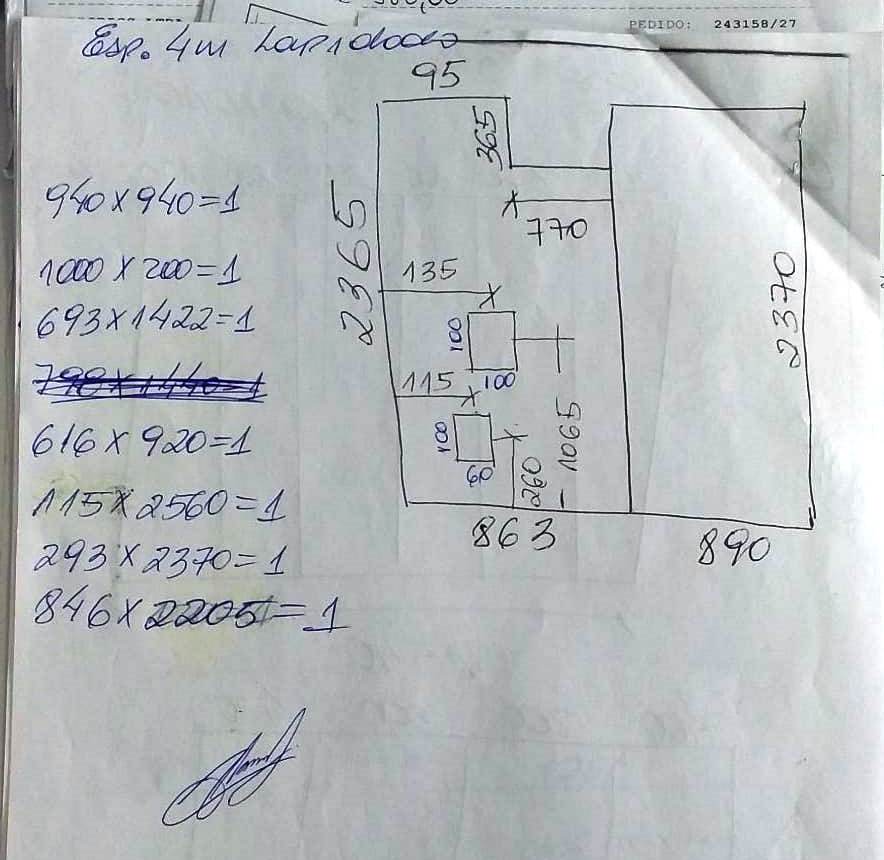 500,00
PEDIDO: 243158/27
Esp. 4m Lapidado
95
365
940 x 940 = 1
770
2365
1000 x 200 = 1
135
2370
693 x 1422 = 1
100
100
798 x 1440 = 1
115
616 x 920 = 1
100
60
260
1065
115 x 2560 = 1
863
890
293 x 2370 = 1
846 x 2205 = 1